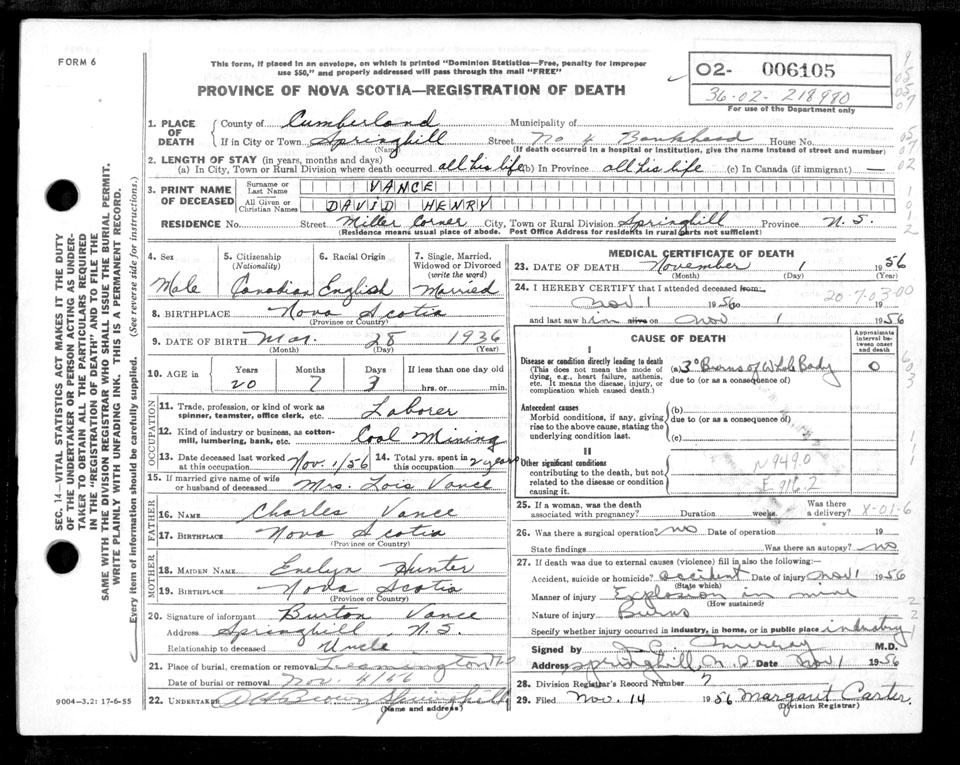 FORM 6
This form, if placed in an envelope, on which is printed "Dominion Statistics—Free, penalty for improper
use $50," and properly addressed will pass through the mail "FREE"
PROVINCE OF NOVA SCOTIA—REGISTRATION OF DEATH
02- 006105
36-02- 218990
For use of the Department only
1. PLACE OF DEATH
County of Cumberland Municipality of
If in City or Town Springhill Street No 4 Bankhead House No.
(Name) (If death occurred in a hospital or institution, give the name instead of street and number)
2. LENGTH OF STAY (in years, months and days)
(a) In City, Town or Rural Division where death occurred all his life (b) In Province all his life (c) In Canada (if immigrant)
3. PRINT NAME OF DECEASED
Surname or Last Name VANCE
All Given or Christian Names DAVID HENRY
RESIDENCE No. Street Miller Corner City, Town or Rural Division Springhill Province N. S.
(Residence means usual place of abode. Post Office Address for residents in rural parts not sufficient)
4. Sex
Male
5. Citizenship
(Nationality)
Canadian
6. Racial Origin
English
7. Single, Married, Widowed or Divorced
(write the word)
Married
8. BIRTHPLACE Nova Scotia
(Province or Country)
9. DATE OF BIRTH Mar. 28 1936
(Month) (Day) (Year)
10. AGE in Years Months Days If less than one day old
20 7 3 hrs. or min.
OCCUPATION
11. Trade, profession, or kind of work as spinner, teamster, office clerk, etc. Laborer
12. Kind of industry or business, as cotton-mill, lumbering, bank, etc. Coal Mining
13. Date deceased last worked at this occupation Nov. 1/56 14. Total yrs. spent in this occupation 2 years
15. If married give name of wife or husband of deceased Mrs. Lois Vance
FATHER
16. NAME Charles Vance
17. BIRTHPLACE Nova Scotia
(Province or Country)
MOTHER
18. MAIDEN NAME Evelyn Hunter
19. BIRTHPLACE Nova Scotia
(Province or Country)
20. Signature of informant Burton Vance
Address Springhill N. S.
Relationship to deceased Uncle
21. Place of burial, cremation or removal Leamington N.S
Date of burial or removal Nov. 4/56
22. UNDERTAKER A H Brown Springhill
(Name and address)
9004-3.2: 17-6-55
MEDICAL CERTIFICATE OF DEATH
23. DATE OF DEATH November 1 1956
(Month) (Day) (Year)
24. I HEREBY CERTIFY that I attended deceased from:
Nov 1 1956 19
20-7-03-00
and last saw him alive on Nov 1 1956
CAUSE OF DEATH
Approximate interval between onset and death
I
Disease or condition directly leading to death
(This does not mean the mode of dying, e.g., heart failure, asthenia, etc. It means the disease, injury, or complication which caused death.)
(a) 3° Burns of Whole Body 0
due to (or as a consequence of)
Antecedent causes
Morbid conditions, if any, giving rise to the above cause, stating the underlying condition last.
(b)
due to (or as a consequence of)
(c)
II
Other significant conditions
contributing to the death, but not related to the disease or condition causing it.
N949.0
E916.2
25. If a woman, was the death associated with pregnancy? Duration weeks. Was there a delivery?
X-01-6
26. Was there a surgical operation? no Date of operation 19
State findings Was there an autopsy? no
27. If death was due to external causes (violence) fill in also the following:
Accident, suicide or homicide? accident Date of injury Nov 1 1956
(State which)
Manner of injury Explosion in mine
(How sustained)
Nature of injury Burns
Specify whether injury occurred in industry, in home, or in public place industry
Signed by Murray M.D.
Address Springhill, N. S. Date Nov 1 1956
28. Division Registrar's Record Number 7
29. Filed Nov. 14 1956 Margaret Carter
(Division Registrar)
SEC. 14—VITAL STATISTICS ACT MAKES IT THE DUTY
OF THE UNDERTAKER OR PERSON ACTING AS UNDER-
TAKER TO OBTAIN ALL THE PARTICULARS REQUIRED
IN THE "REGISTRATION OF DEATH" AND TO FILE THE
SAME WITH THE DIVISION REGISTRAR WHO SHALL ISSUE THE BURIAL PERMIT.
WRITE PLAINLY WITH UNFADING INK. THIS IS A PERMANENT RECORD.
Every item of information should be carefully supplied. (See reverse side for instructions.)